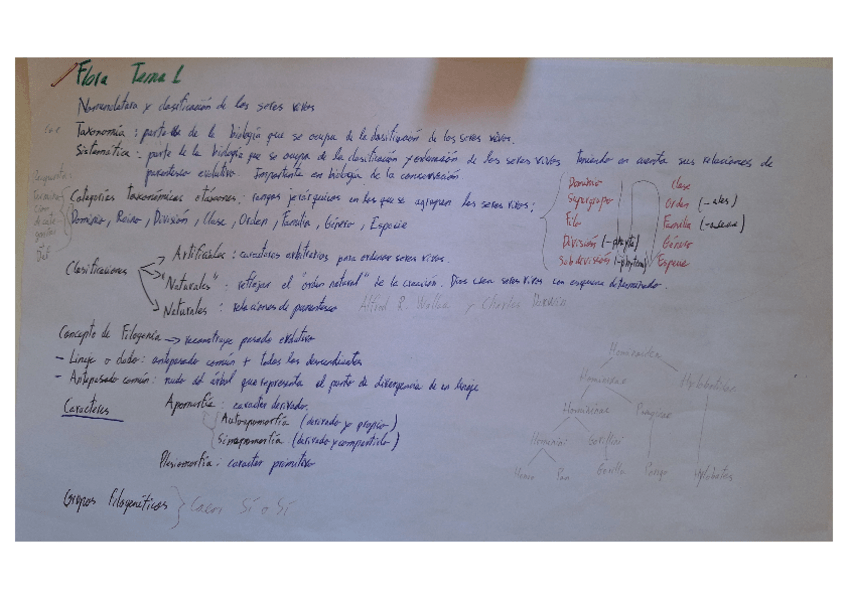 Flora Tema 1
Nomenclatura y clasificación de los seres vivos
Taxonomía : parte de la biología que se ocupa de la clasificación de los seres vivos.
Sistemática : parte de la biología que se ocupa de la clasificación y ordenación de los seres vivos teniendo en cuenta sus relaciones de
parentesco evolutivo. Importante en biología de la conservación
Categorías taxonómicas o táxones : rangos jerárquicos en los que se agrupan los seres vivos:
Dominio, Reino, División, Clase, Orden, Familia, Género, Especie
Dominio
Supergrupo
Filo
División (-phyta)
Subdivisión (-phytina)
Clase
Orden (-ales)
Familia (-aceae)
Género
Especie
Clasificaciones
Artificiales : caracteres arbitrarios para ordenar seres vivos.
"Naturales" : reflejar el "orden natural" de la creación. Dios crea seres vivos con esquema determinado.
Naturales : relaciones de parentesco Alfred R. Wallace y Charles Darwin
Concepto de Filogenia → reconstruye pasado evolutivo
- Linaje o clado : antepasado común + todos los descendientes
- Antepasado común : nudo del árbol que representa el punto de divergencia de un linaje
Caracteres
Apomorfía : caracter derivado.
Autapomorfía (derivado y propio)
Sinapomorfía (derivado y compartido)
Plesiomorfía : caracter primitivo
Grupos filogenéticos } Caen Sí o Sí
Hominoidea
Hominidae Hylobatidae
Homininae Ponginae
Hominini Gorillini
Homo Pan Gorilla Pongo Hylobates